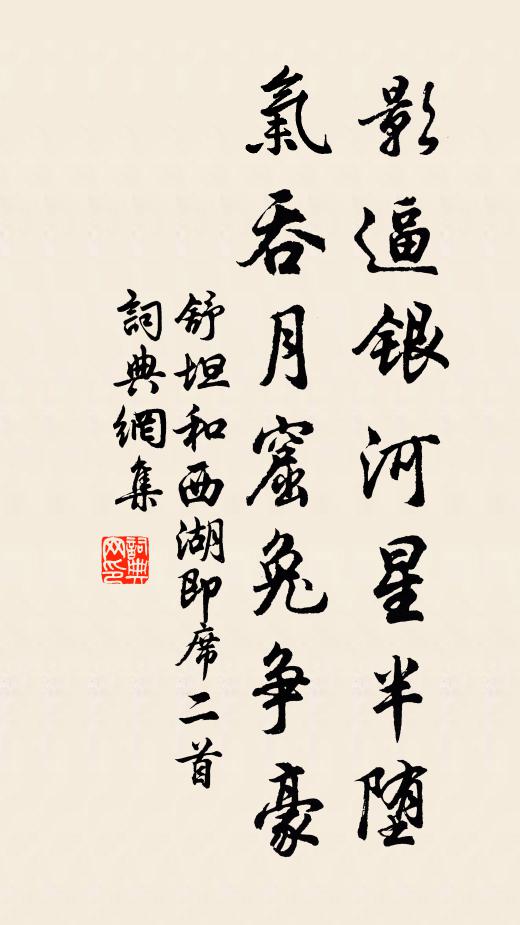 影逼银河星半堕
氣吞月窟兔争豪
舒坦和西湖即席二首
詞典網集
詞典網印